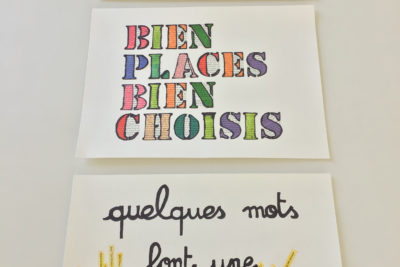 BIEN
PLACES
BIEN
CHOISIS
quelques mots
font une